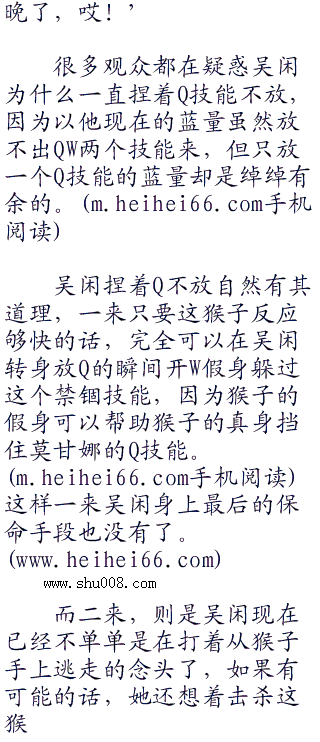 晚了，哎！’
很多观众都在疑惑吴闲
为什么一直捏着Q技能不放，
因为以他现在的蓝量虽然放
不出QW两个技能来，但只放
一个Q技能的蓝量却是绰绰有
余的。(m.heihei66.com手机
阅读)
吴闲捏着Q不放自然有其
道理，一来只要这猴子反应
够快的话，完全可以在吴闲
转身放Q的瞬间开W假身躲过
这个禁锢技能，因为猴子的
假身可以帮助猴子的真身挡
住莫甘娜的Q技能。
(m.heihei66.com手机阅读)
这样一来吴闲身上最后的保
命手段也没有了。
(www.heihei66.com)
www.shu008.com
而二来，则是吴闲现在
已经不单单是在打着从猴子
手上逃走的念头了，如果有
可能的话，她还想着击杀这
猴